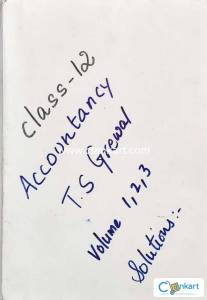 class-12
Accountancy
T.S Grewal
Volume 1,2,3
Solutions:-
Clankart